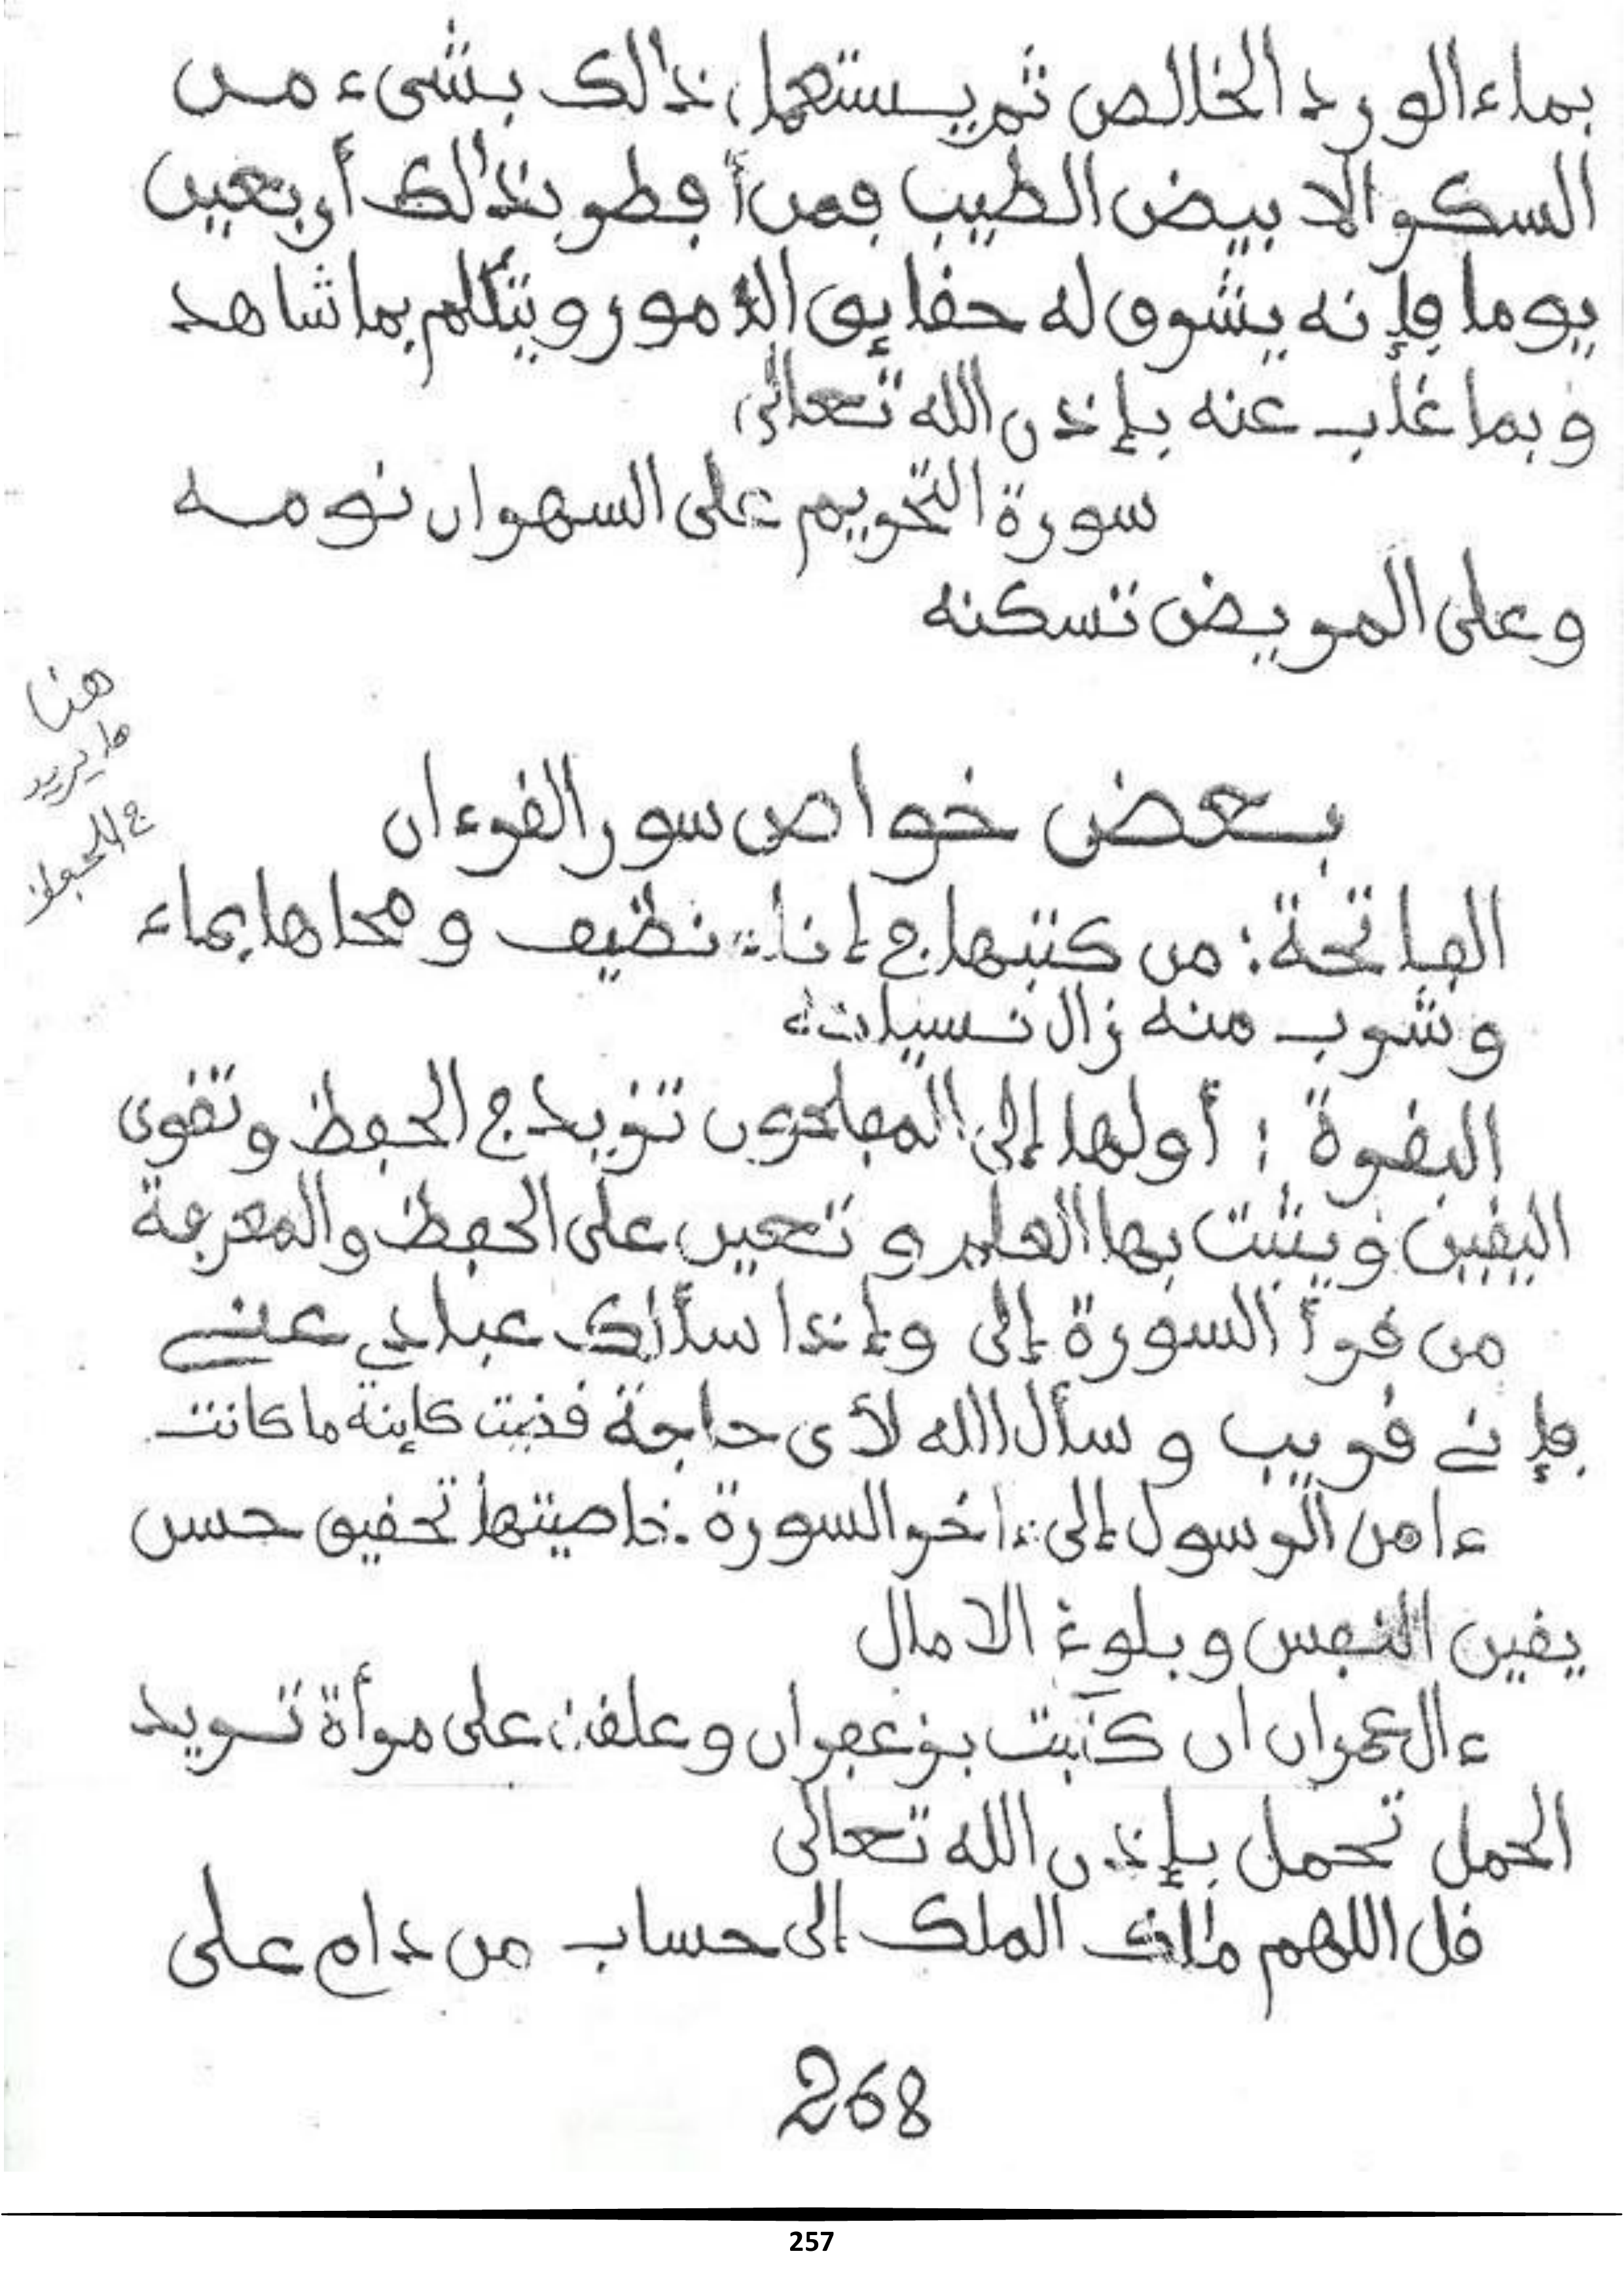 بماء الورد الخالص ثم يستعمل ذالك بشىء من
السكر الابيض الطيب فمن أفطر بذالك أربعين
يوما فإنه يشرق له حقايق الامور ويتكلم بما شاهد
وبما غاب عنه بإذن الله تعالى
سورة التحريم على السهران نومه
وعلى المريض تسكنه
هنا
ما يريد
بعض خواص سور القرءان
الفاتحة: من كتبها في إناء نظيف ومحاها بماء
وشرب منه زال نسيانه
البقرة: أولها إلى المفلحون تزيد في الحفظ وتقوى
اليقين ويثبت بها العلم وتعين على الحفظ والمعرفة
من قرأ السورة إلى وإذا سألك عبادي عني
فإني قريب وسأل الله لأى حاجة قضيت كاينة ما كانت
ءامن الرسول إلى ءاخر السورة. خاصيتها تحقيق حسن
يقين النفس وبلوغ الامال
ءال عمران ان كتبت بزعفران وعلقت على مرأة تريد
الحمل تحمل بإذن الله تعالى
قل اللهم مالك الملك إلى حساب من دام على
268
257